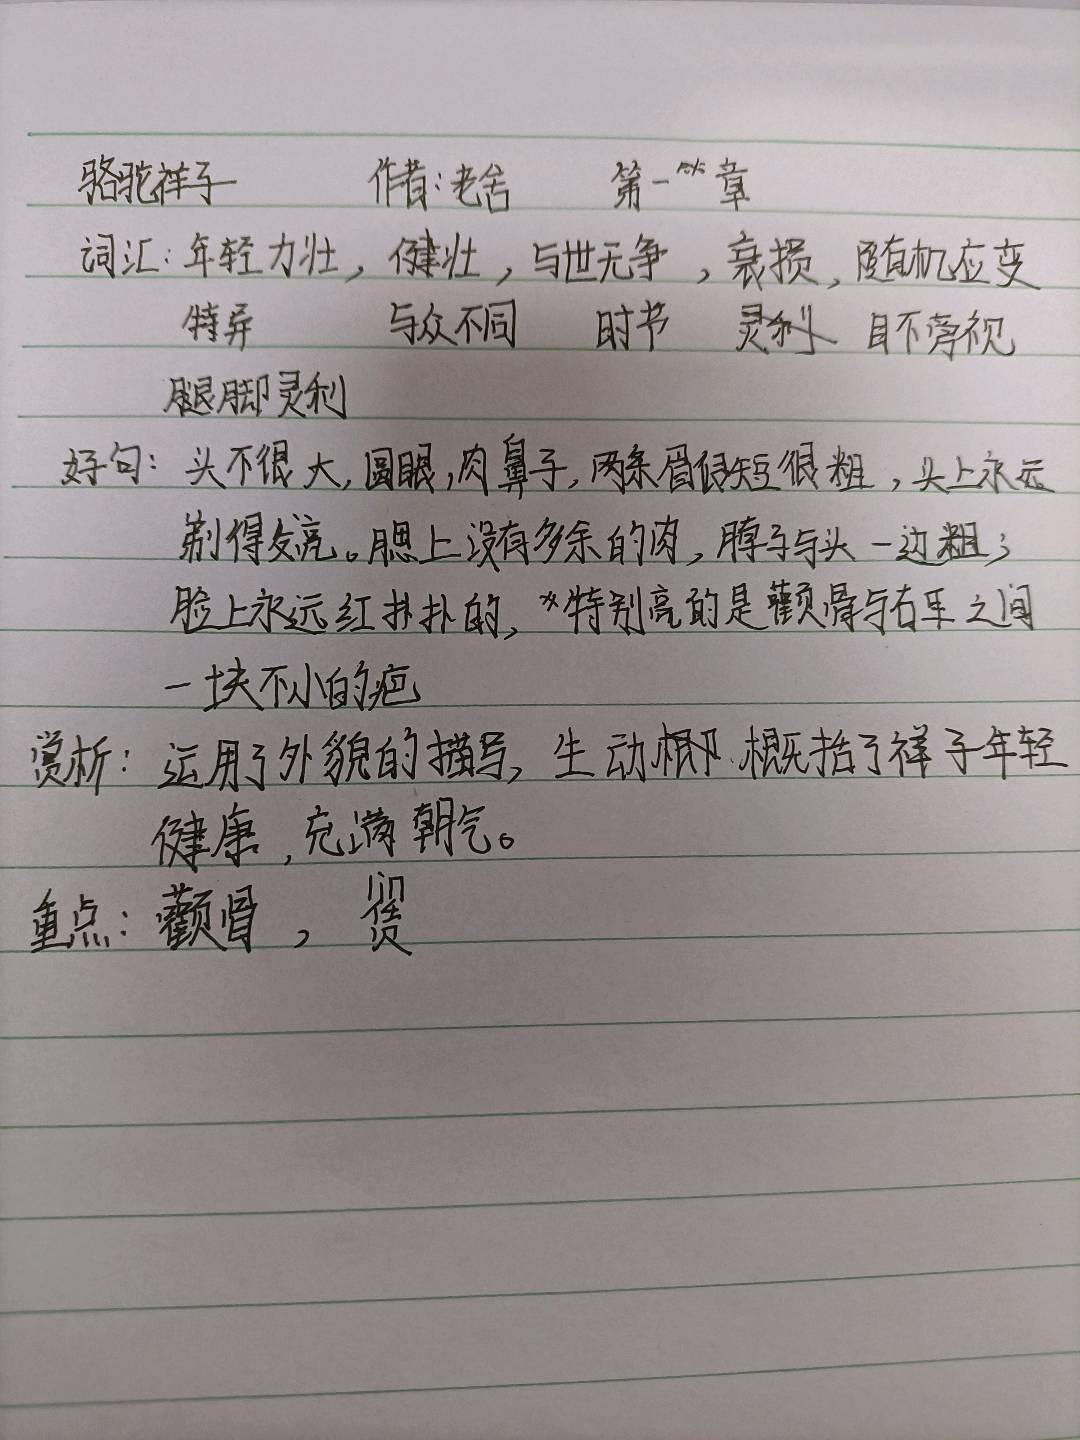 骆驼祥子 作者:老舍 第一章
词汇:年轻力壮,健壮,与世无争,衰损,随机应变
特异 与众不同 时节 灵利 目不旁视
腿脚灵利
好句:头不很大,圆眼,肉鼻子,两条眉很短很粗,头上永远
剃得发亮。腮上没有多余的肉,脖子与头一边粗;
脸上永远红扑扑的,特别亮的是颧骨与右耳之间
一块不小的疤
赏析:运用了外貌的描写,生动概括了祥子年轻
健康,充满朝气。
重点:颧骨,赁